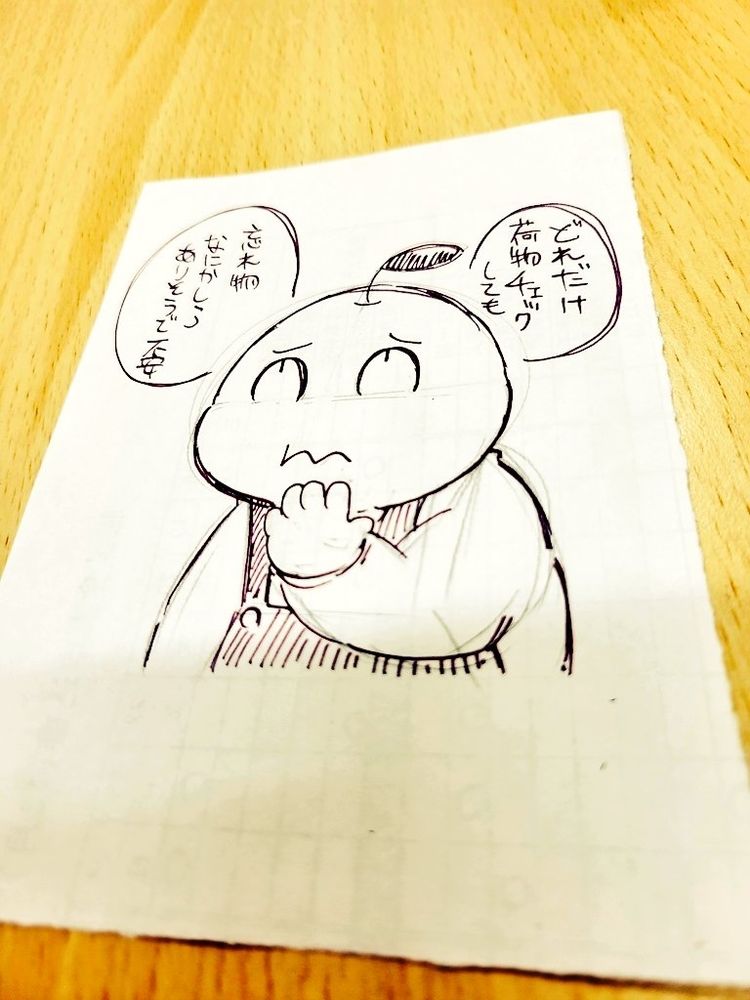 どれだけ
荷物チェック
しても
忘れ物
なにかしら
ありそうで不安